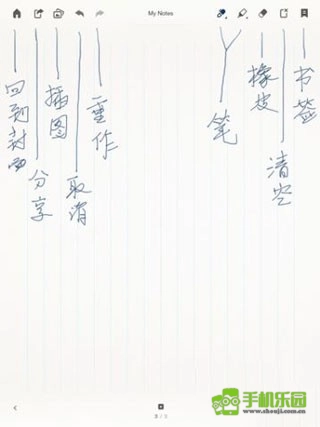 My Notes
回到封面
分享
插图
取消
重作
笔
橡皮
清空
书签
手机乐园
www.shouji.com.cn